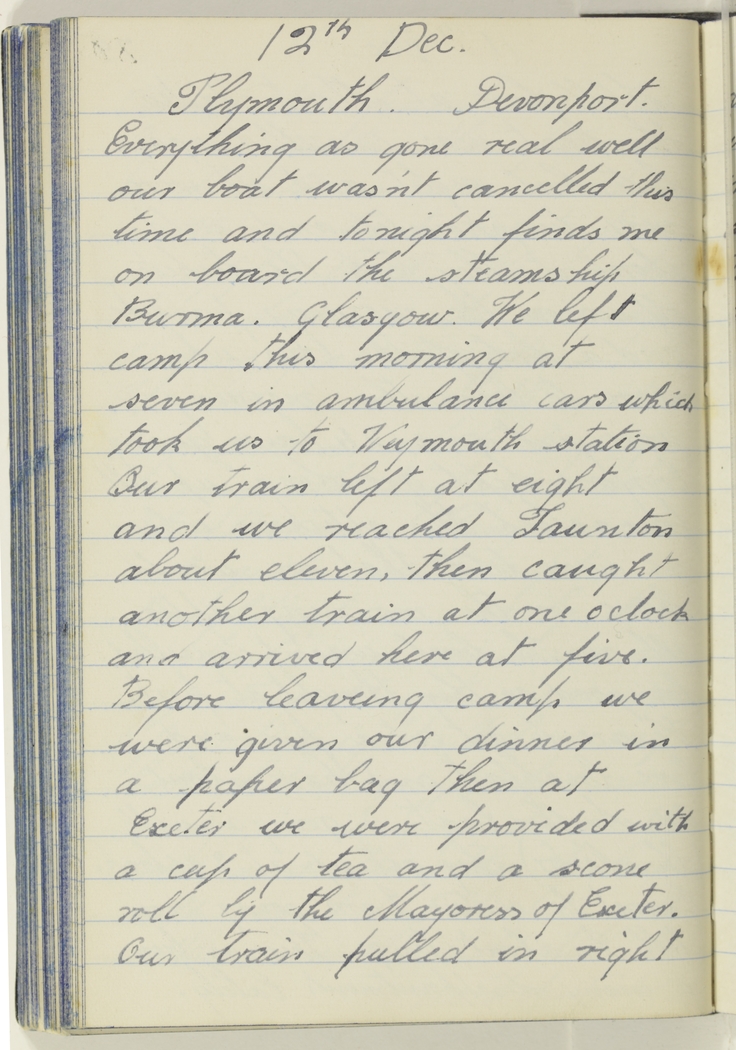 12th Dec.
Plymouth. Devonport.
Everything as gone real well
our boat wasn't cancelled this
time and tonight finds me
on board the steamship
Burma. Glasgow. We left
camp this morning at
seven in ambulance cars which
took us to Weymouth station
Our train left at eight
and we reached Taunton
about eleven, then caught
another train at one oclock
and arrived here at five.
Before leaveing camp we
were given our dinner in
a paper bag then at
Exeter we were provided with
a cup of tea and a scone
roll by the Mayoress of Exeter.
Our train pulled in right